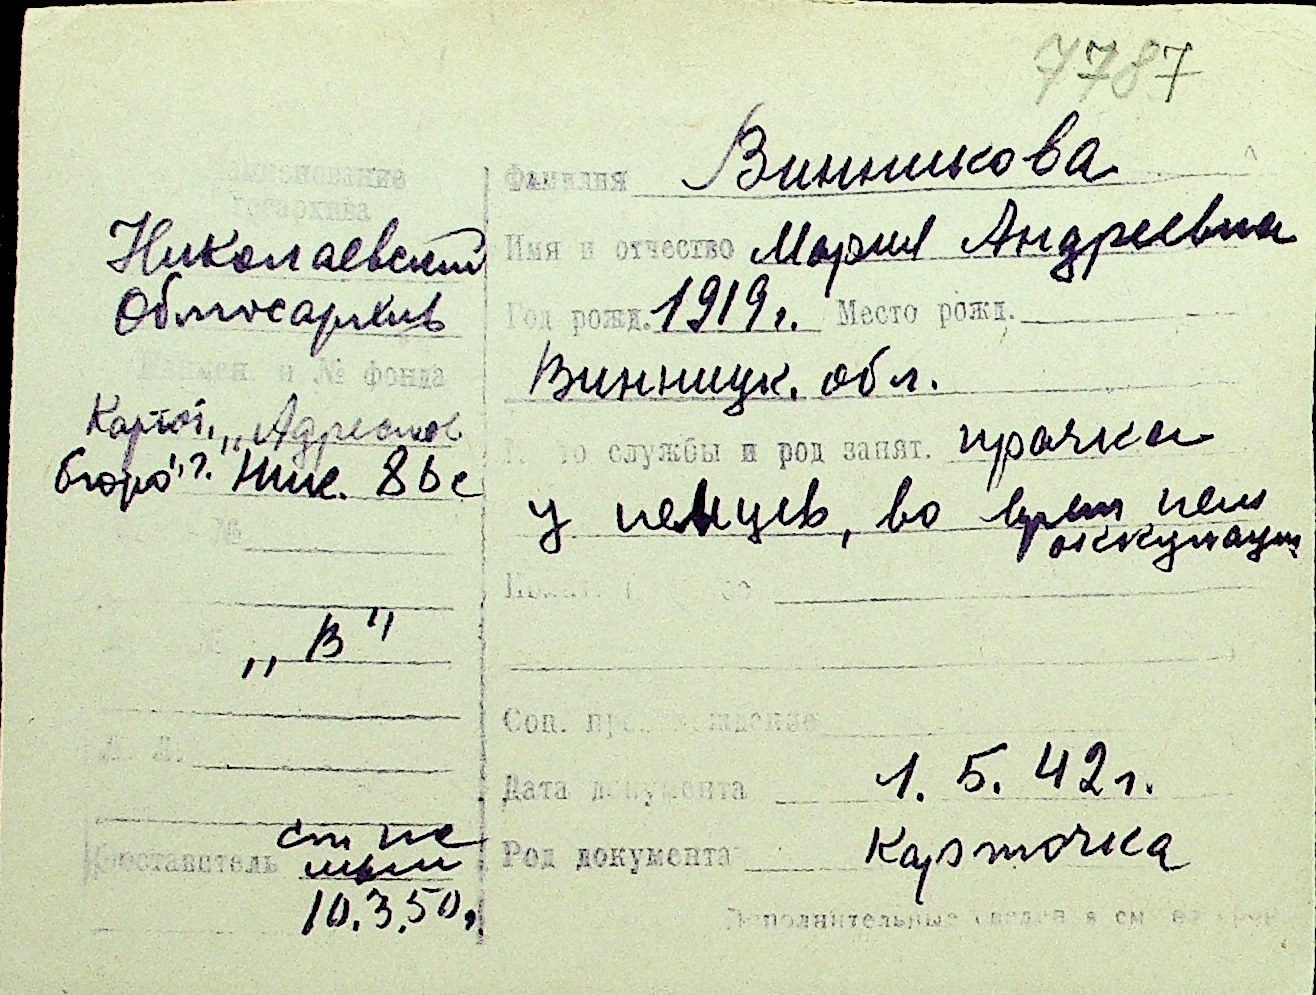 7787
Наименование
госархива
Николаевский
Облгосархив
Наимен. и № фонда
Картот. „Адресное
бюро" г. Ник.
№
„В"
Составитель
10.3.50г.
Фамилия Винникова
Имя и отчество Мария Андреевна
Год рожд. 1919г. Место рожд.
Винницк. обл.
службы и род занят. прачка
у немцев, во время нем
оккупации
Соц. происхождение
Дата документа 1. 5. 42г.
Род документа Карточка
Дополнительные сведения см. на обор.